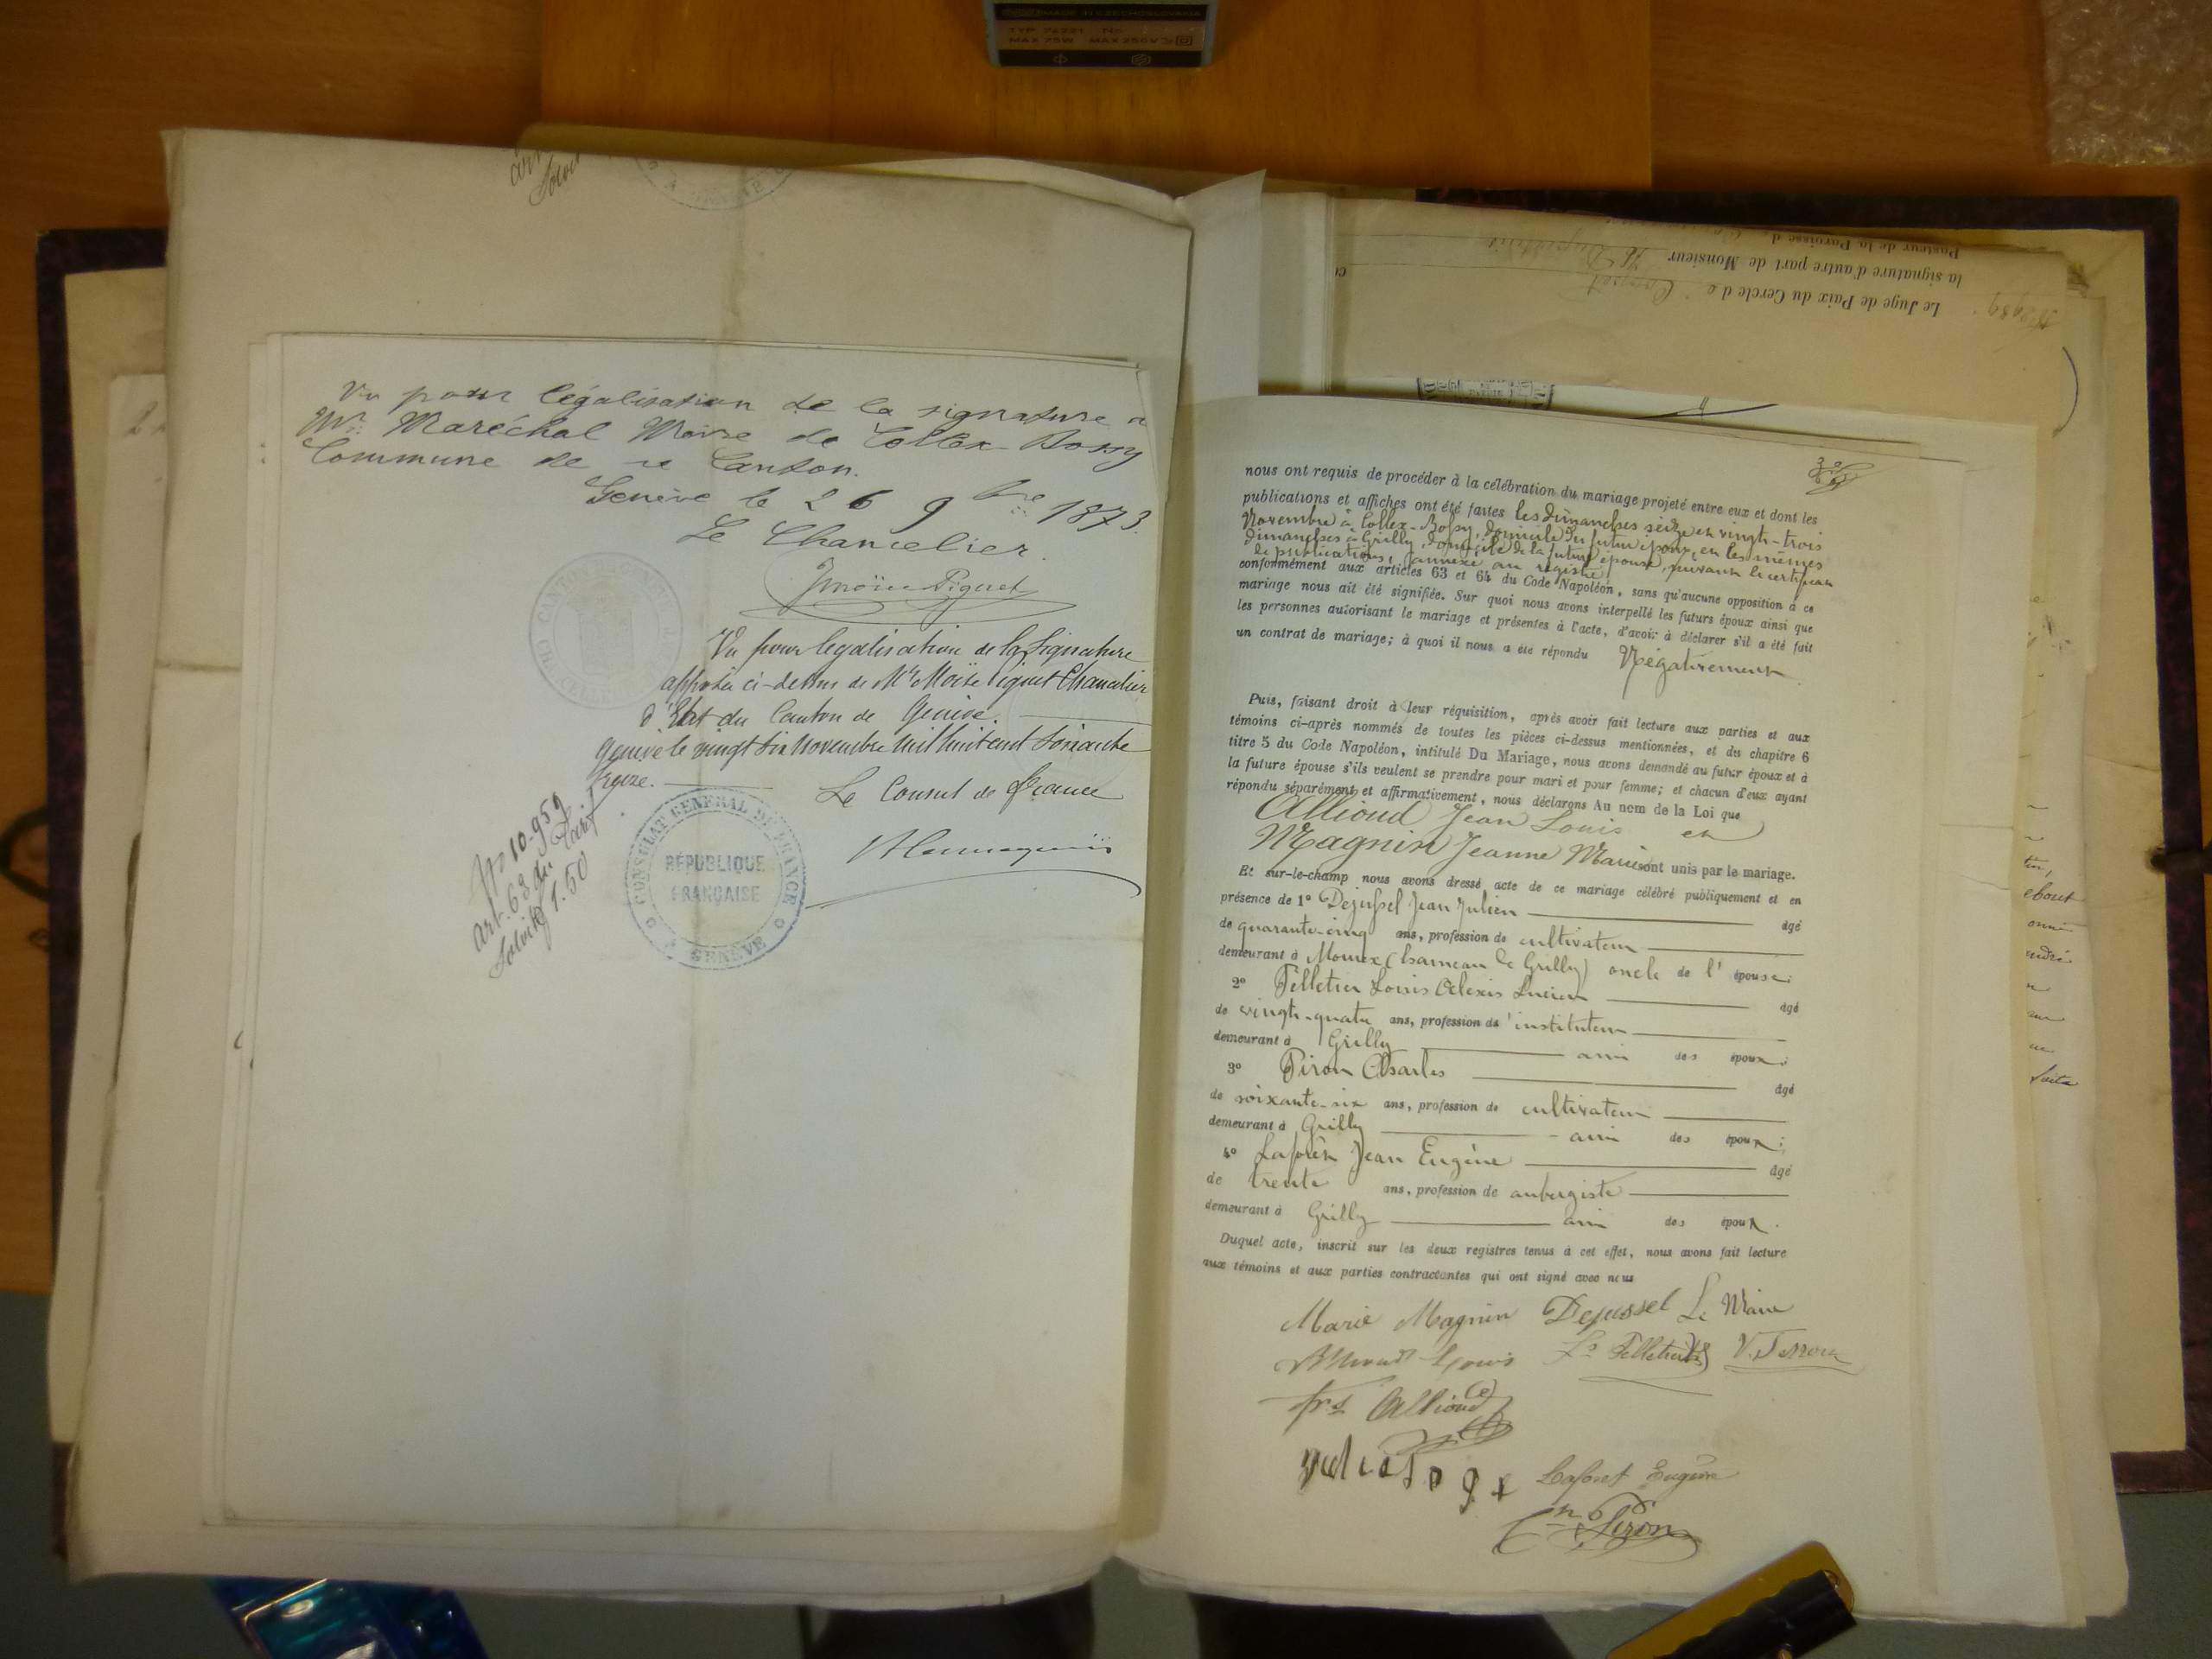 MADE IN CZECHOSLOVAKIA
TYP
MAX 75W MAX 250V
Le Juge de Paix du Cercle de Coppet
la signature d'autre part de Monsieur
Pasteur de la Paroisse d
Vu pour légalisation de la signature
Mr. Maréchal Maire de Collex-Bossy
Commune de ce Canton.
Genève le 26 9bre 1873.
Le Chancelier.
Moïse Piguet
Vu pour légalisation de la Signature
apposée ci-dessus de Mr Moïse Piguet Chancelier
d'Etat du Canton de Genève.
Genève le vingt six novembre mil huit cent soixante
treize.
Le Consul de France
No 10.959
Art. 63 du Tarif
7.50
CONSULAT GENERAL DE FRANCE
RÉPUBLIQUE
FRANÇAISE
A GENÈVE
nous ont requis de procéder à la célébration du mariage projeté entre eux et dont les
publications et affiches ont été faites les dimanches seize et vingt-trois
Novembre à Collex-Bossy, domicile du futur époux, et les mêmes
dimanches à Grilly, domicile de la future épouse, suivant le certificat
de publications, annexé au registre
conformément aux articles 63 et 64 du Code Napoléon, sans qu'aucune opposition à ce
mariage nous ait été signifiée. Sur quoi nous avons interpellé les futurs époux ainsi que
les personnes autorisant le mariage et présentes à l'acte, d'avoir à déclarer s'il a été fait
un contrat de mariage; à quoi il nous a été répondu Négativement
Puis, faisant droit à leur réquisition, après avoir fait lecture aux parties et aux
témoins ci-après nommés de toutes les pièces ci-dessus mentionnées, et du chapitre 6
titre 5 du Code Napoléon, intitulé Du Mariage, nous avons demandé au futur époux et à
la future épouse s'ils veulent se prendre pour mari et pour femme; et chacun d'eux ayant
répondu séparément et affirmativement, nous déclarons Au nom de la Loi que
Allioud Jean Louis et
Magnin Jeanne Marie sont unis par le mariage.
Et sur-le-champ nous avons dressé acte de ce mariage célébré publiquement et en
présence de 1º Dejussel Jean Julien âgé
de quarante-cinq ans, profession de cultivateur
demeurant à Mourex (hameau de Grilly) oncle de l'épouse;
2º Pelletier Louis Alexis Lucien âgé
de vingt-quatre ans, profession d'instituteur
demeurant à Grilly ami des époux;
3º Piron Charles âgé
de soixante-six ans, profession de cultivateur
demeurant à Grilly ami des époux;
4º Laforêt Jean Eugène âgé
de trente ans, profession de aubergiste
demeurant à Grilly ami des époux.
Duquel acte, inscrit sur les deux registres tenus à cet effet, nous avons fait lecture
aux témoins et aux parties contractantes qui ont signé avec nous
Marie Magnin Dejussel Le Maire
Louis Ls Pelletier
frs Allioud
Laforet Eugène
Piron
ebout